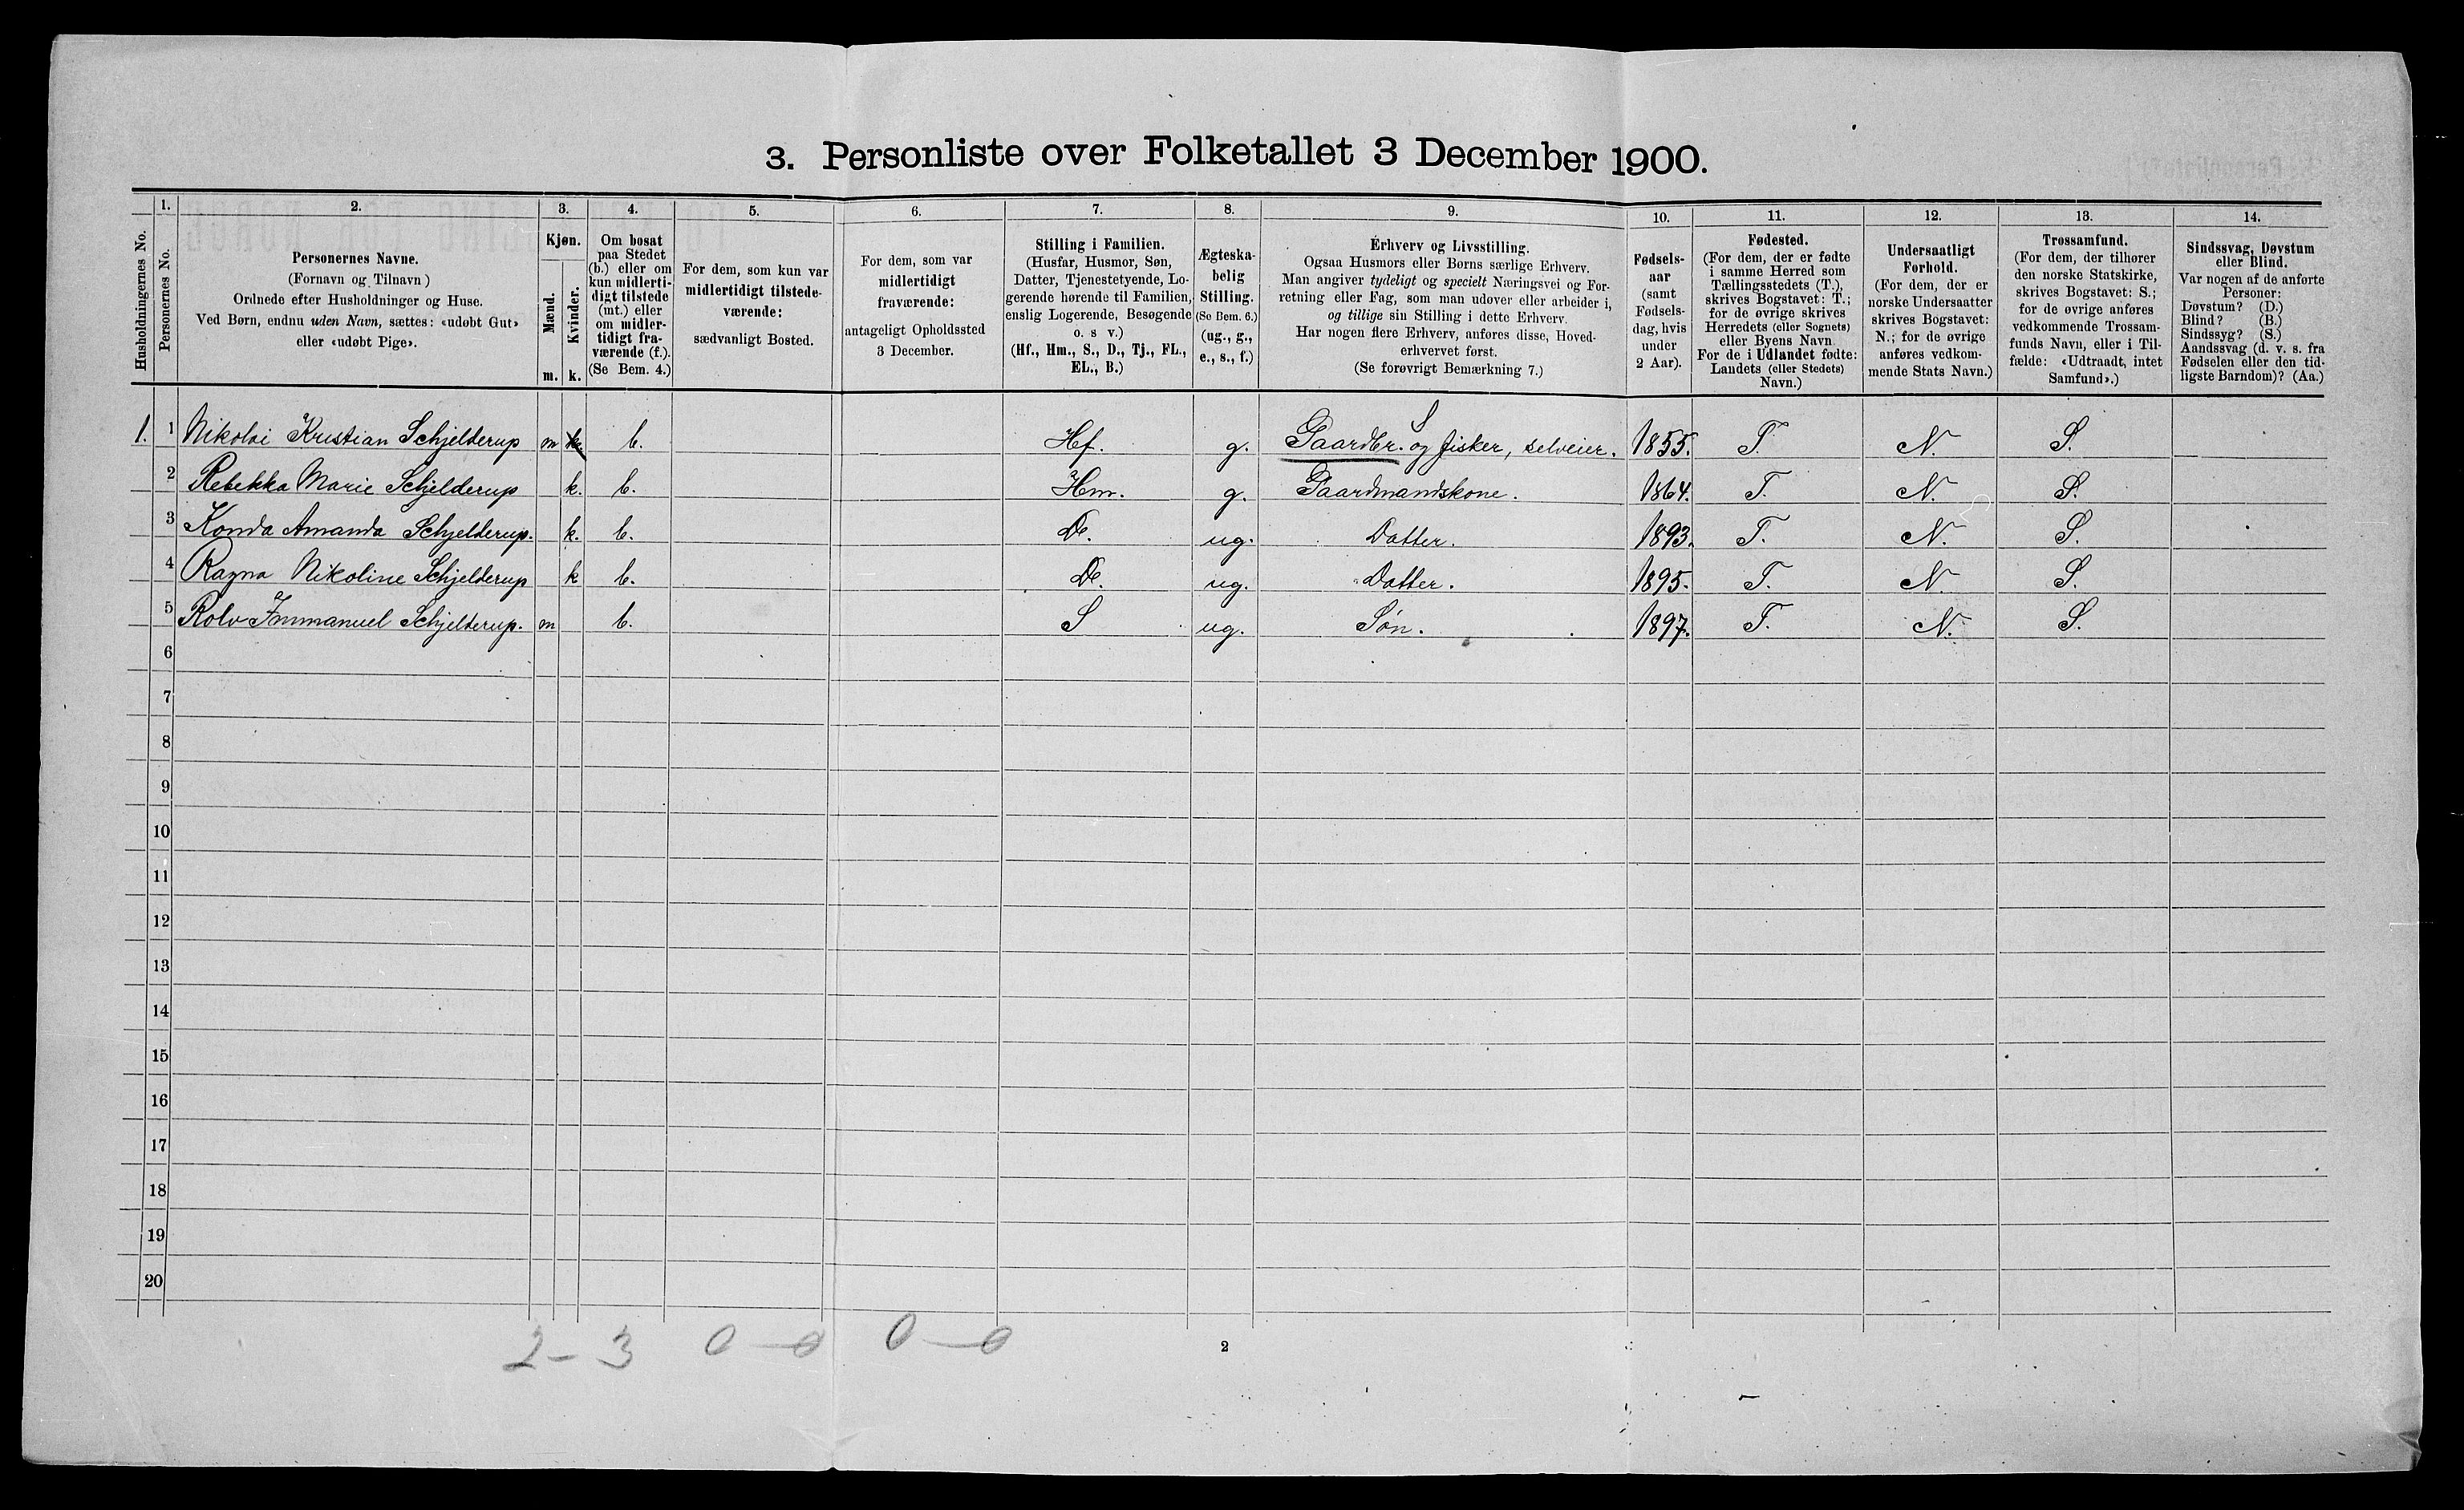 3. Personliste over Folketallet 3 December 1900.
1. 2. 3. 4. 5. 6. 7. 8. 9. 10. 11. 12. 13. 14.
Husholdningernes No.
Personernes No.
Personernes Navne.
(Fornavn og Tilnavn)
Ordnede efter Husholdninger og Huse.
Ved Børn, endnu uden Navn, sættes: «udøbt Gut»
eller «udøbt Pige».
Kjøn.
Mænd.
Kvinder.
m. k.
Om bosat
paa Stedet
(b.) eller om
kun midlerti-
digt tilstede
(mt.) eller
om midler-
tidigt fra-
værende (f.).
(Se Bem. 4.)
For dem, som kun var
midlertidigt tilstede-
værende:
sædvanligt Bosted.
For dem, som var
midlertidigt
fraværende:
antageligt Opholdssted
3 December.
Stilling i Familien.
(Husfar, Husmor, Søn,
Datter, Tjenestetyende, Lo-
gerende hørende til Familien,
enslig Logerende, Besøgende
o. s v.)
(Hf., Hm., S., D., Tj., FL.,
EL., B.)
Ægteska-
belig
Stilling.
(Se Bem. 6.)
(ug., g.,
e., s., f.)
Erhverv og Livsstilling.
Ogsaa Husmors eller Børns særlige Erhverv.
Man angiver tydeligt og specielt Næringsvei og For-
retning eller Fag, som man udøver eller arbeider i,
og tillige sin Stilling i dette Erhverv.
Har nogen flere Erhverv, anføres disse, Hoved-
erhvervet først.
(Se forøvrigt Bemærkning 7.)
Fødsels-
aar
(samt
Fødsels-
dag, hvis
under
2 Aar).
Fødested.
(For dem, der er fødte
i samme Herred som
Tællingsstedets (T.),
skrives Bogstavet: T.;
for de øvrige skrives
Herredets (eller Sognets)
eller Byens Navn.
For de i Udlandet fødte:
Landets (eller Stedets)
Navn.)
Undersaatligt
Forhold.
(For dem, der er
norske Undersaatter
skrives Bogstavet:
N.; for de øvrige
anføres vedkom-
mende Stats Navn.)
Trossamfund.
(For dem, der tilhører
den norske Statskirke,
skrives Bogstavet: S.;
for de øvrige anføres
vedkommende Trossam-
funds Navn, eller i Til-
fælde: «Udtraadt, intet
Samfund».)
Sindssvag, Døvstum
eller Blind.
Var nogen af de anførte
Personer:
Døvstum? (D.)
Blind? (B.)
Sindssyg? (S.)
Aandssvag (d. v. s. fra
Fødselen eller den tid-
ligste Barndom)? (Aa.)
S
1. 1 Nikolai Kristian Schjelderup m k. b. Hf. g. Gaardbr. og fisker, selveier. 1855. T. N. S.
2 Rebekka Marie Schjelderup k. b. Hm. g. Gaardmandskone. 1864. T. N. S.
3 Konda Amanda Schjelderup. k. b. D. ug. Datter. 1893. T. N. S.
4 Ragna Nikoline Schjelderup k b. D. ug. Datter. 1895. T. N. S.
5 Rolv Immanuel Schjelderup. m b. S ug. Søn. 1897. T. N. S.
6
7
8
9
10
11
12
13
14
15
16
17
18
19
20
2 – 3 0 – 0 0 – 0
2